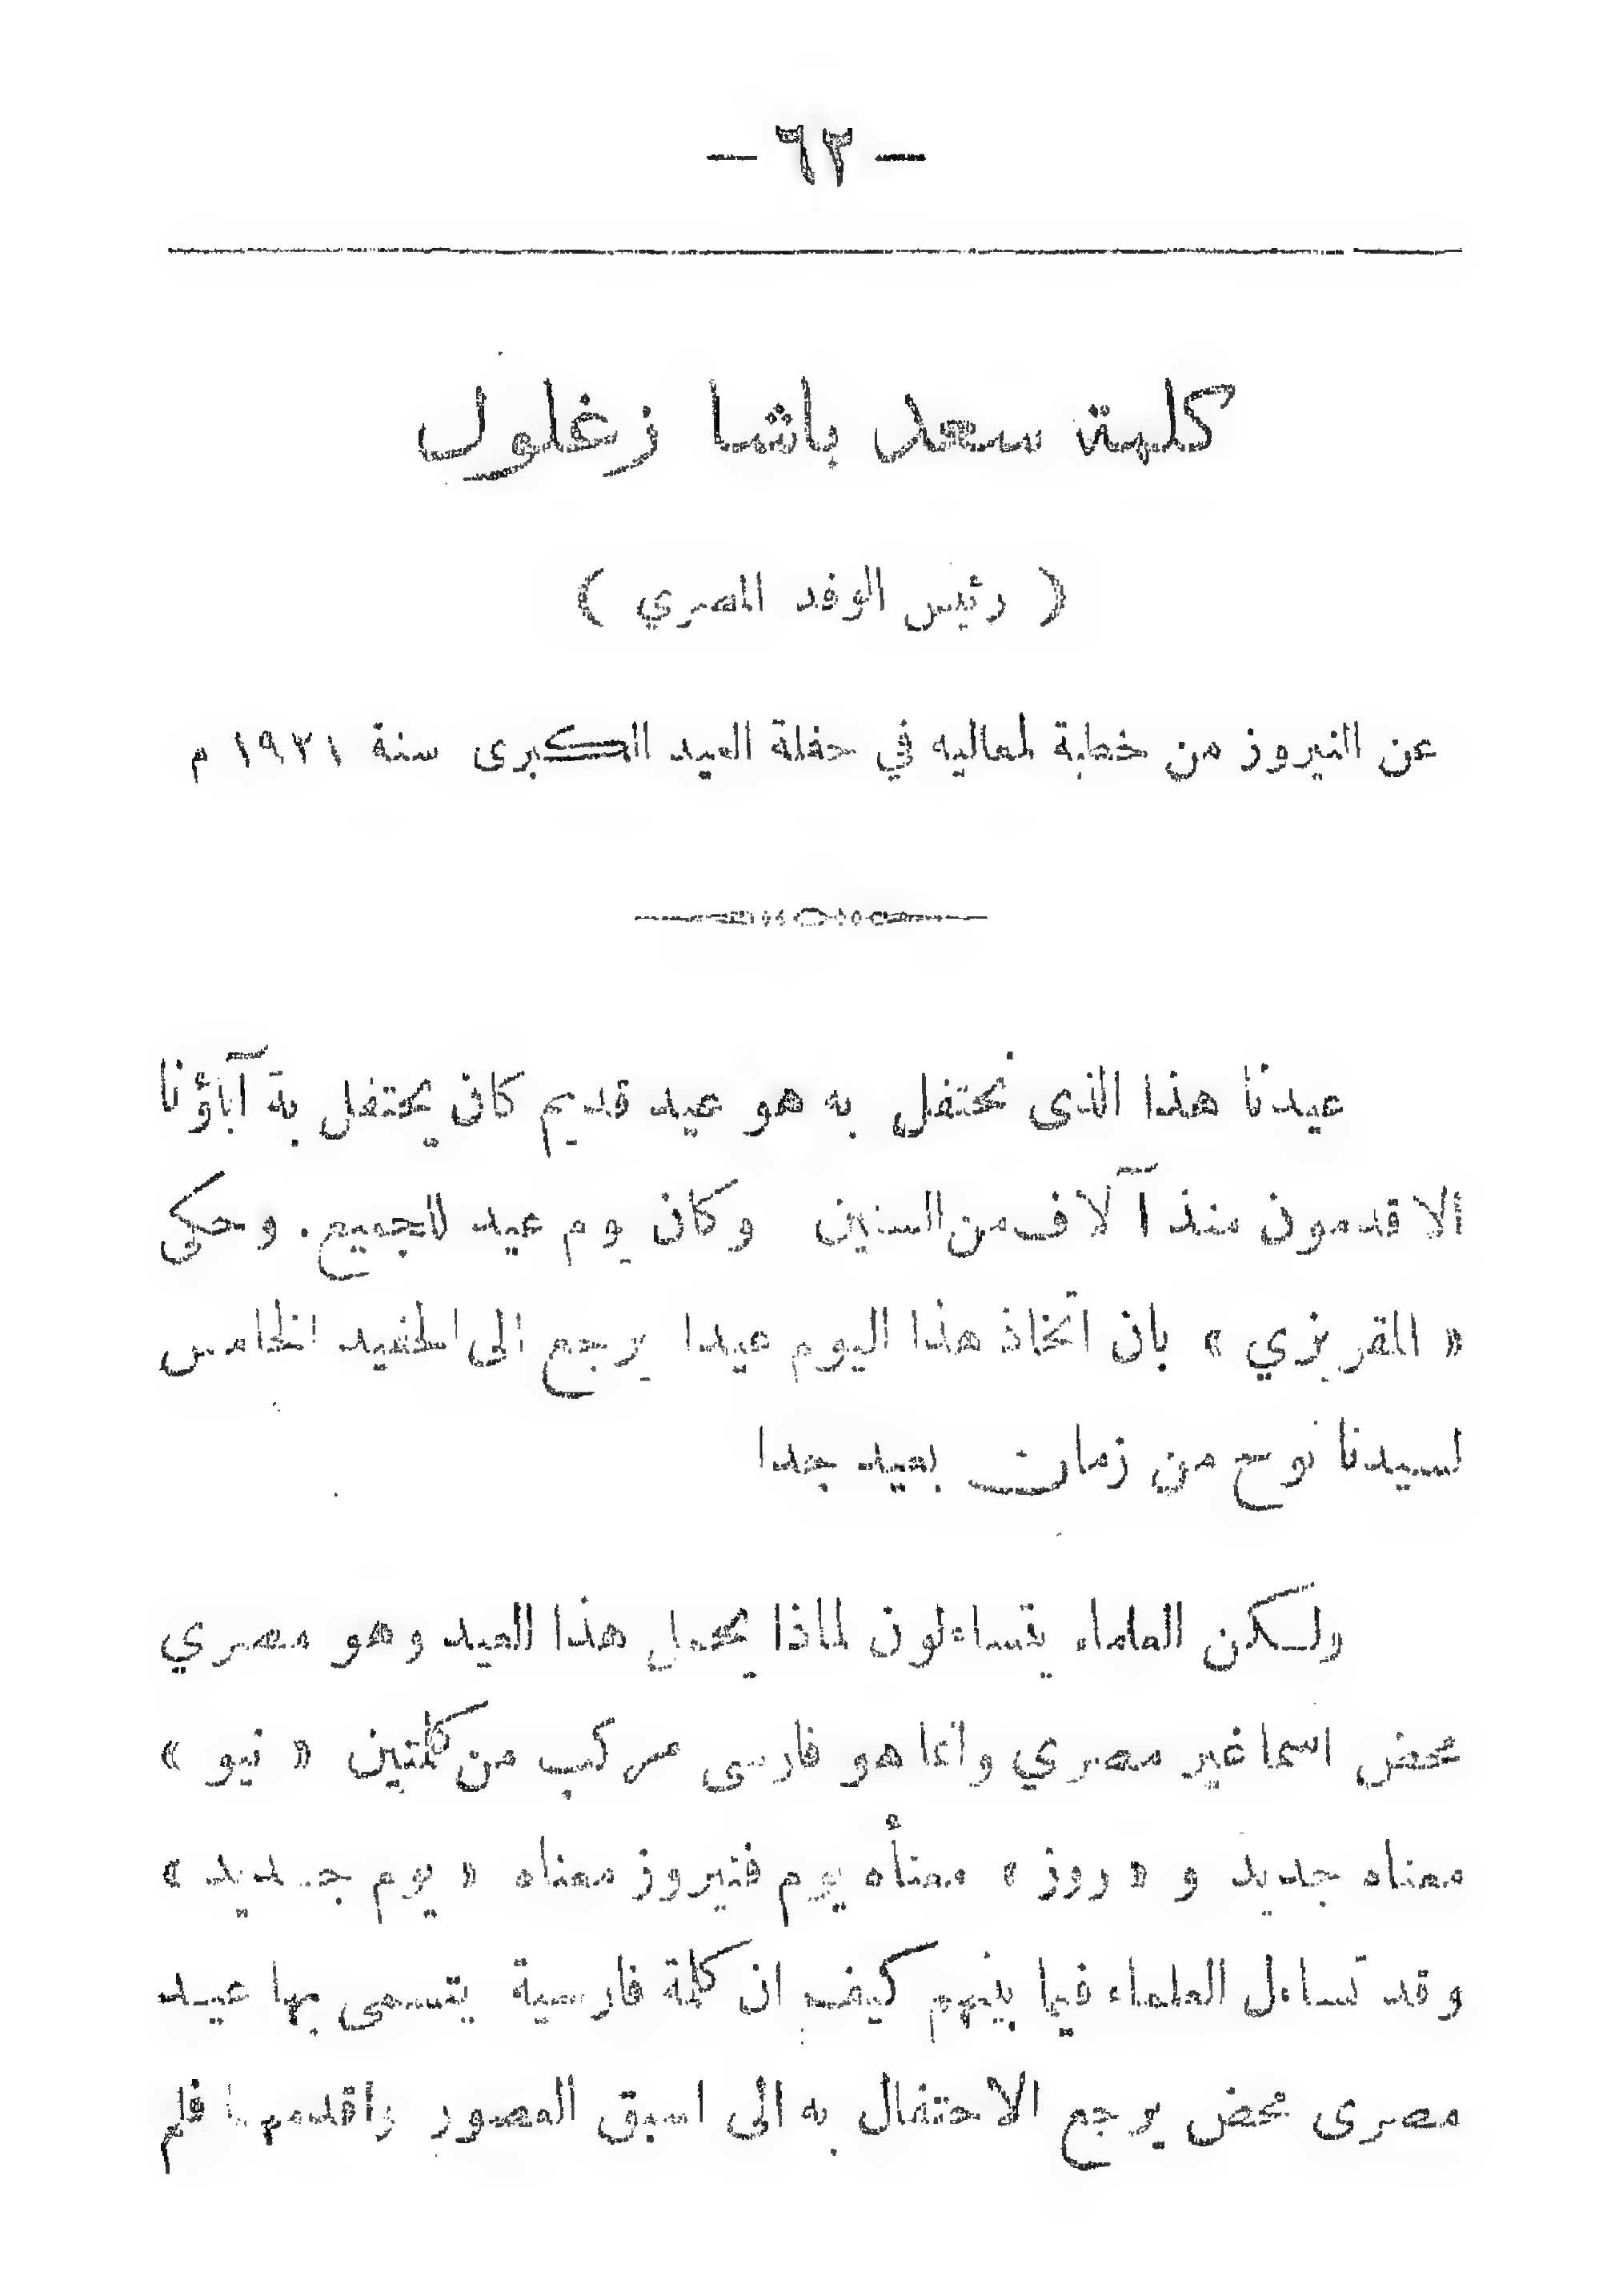 — ٦٣ —
كلمة سعد باشا زغلول
( رئيس الوفد المصري )
عن النيروز من خطبة لمعاليه في حفلة العيد الكبرى سنة ١٩٢١ م
عيدنا هذا الذى نحتفل به هو عيد قديم كان يحتفل بة آباؤنا
الاقدمون منذ آلاف من السنين وكان يوم عيد للجميع . وحكى
« المقريزي » بان اتخاذ هذا اليوم عيدا يرجع الى الحفيد الخامس
لسيدنا نوح من زمان بعيد جدا
ولكن العلماء يتساءلون لماذا يحمل هذا العيد وهو مصري
محض اسما غير مصري وانما هو فارسى مركب من كلمتين « نيو »
معناه جديد و « روز » معنأه يوم فنيروز معناه « يوم جديد »
وقد تساءل العلماء فيما بينهم كيف ان كلمة فارسية يتسمى بها عيد
مصرى محض يرجع الاحتفال به الى اسبق العصور واقدمها فلم